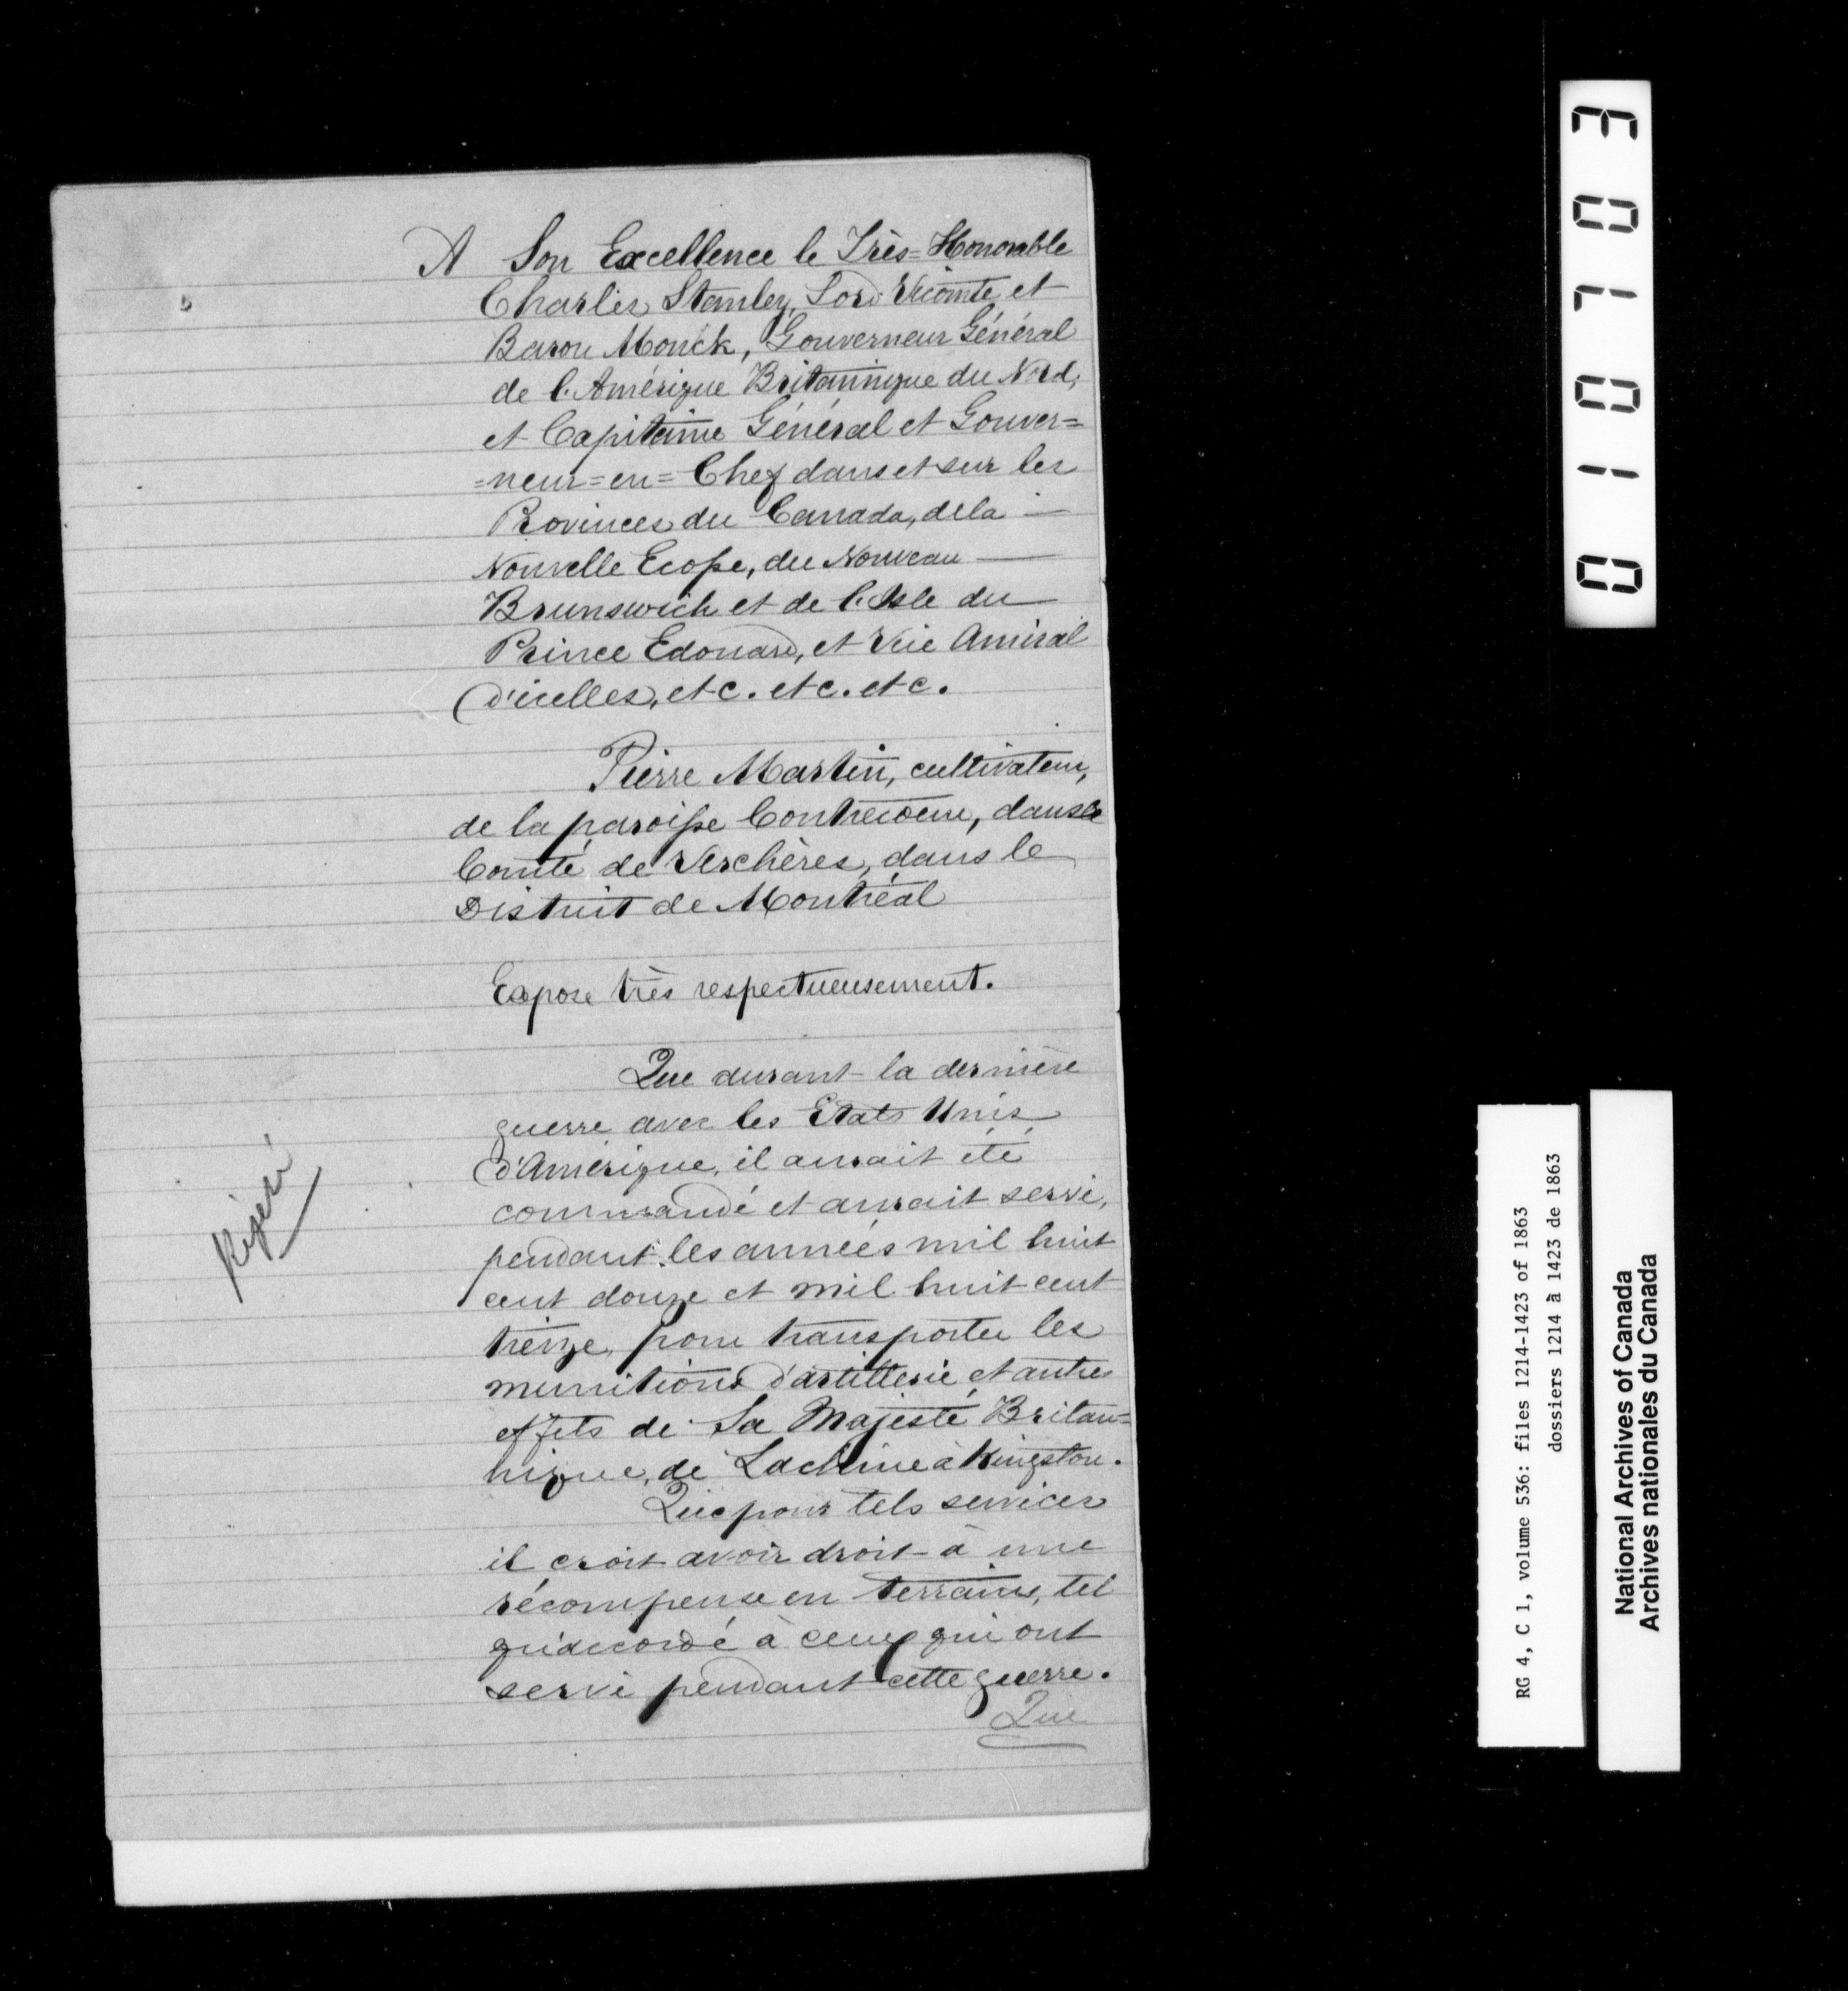 A Son Excellence le Très=Honorable
Charles Stanley, Lord Vicomte et
Baron Monck, Gouverneur Général
de l'Amérique Britannique du Nord,
et Capitaine Général et Gouver=
=neur=en=Chef dans et sur les
Provinces du Canada, de la —
Nouvelle Ecosse, du Nouveau —
Brunswick et de l'Isle du
Prince Edouard, et Vice Amiral
d'icelles, etc. etc. etc.
Pierre Martin, cultivateur,
de la paroisse Contrecoeur, dans le
Comté de Verchères, dans le
District de Montréal
Expose très respectueusement.
Que durant la dernière
guerre avec les Etats Unis
d'Amérique, il aurait été
commandé et aurait servi,
pendant les années mil huit
cent douze et mil huit cent
treize, pour transporter les
munitions d'artillerie et autres
effets de Sa Majesté Britan=
nique, de Lachine à Kingston.
Que pour tels services
il croit avoir droit à une
récompense en terrains, tel
qu'accordé à ceux qui ont
servi pendant cette guerre.
Que
010703
RG 4, C 1, volume 536: files 1214-1423 of 1863
dossiers 1214 à 1423 de 1863
National Archives of Canada
Archives nationales du Canada